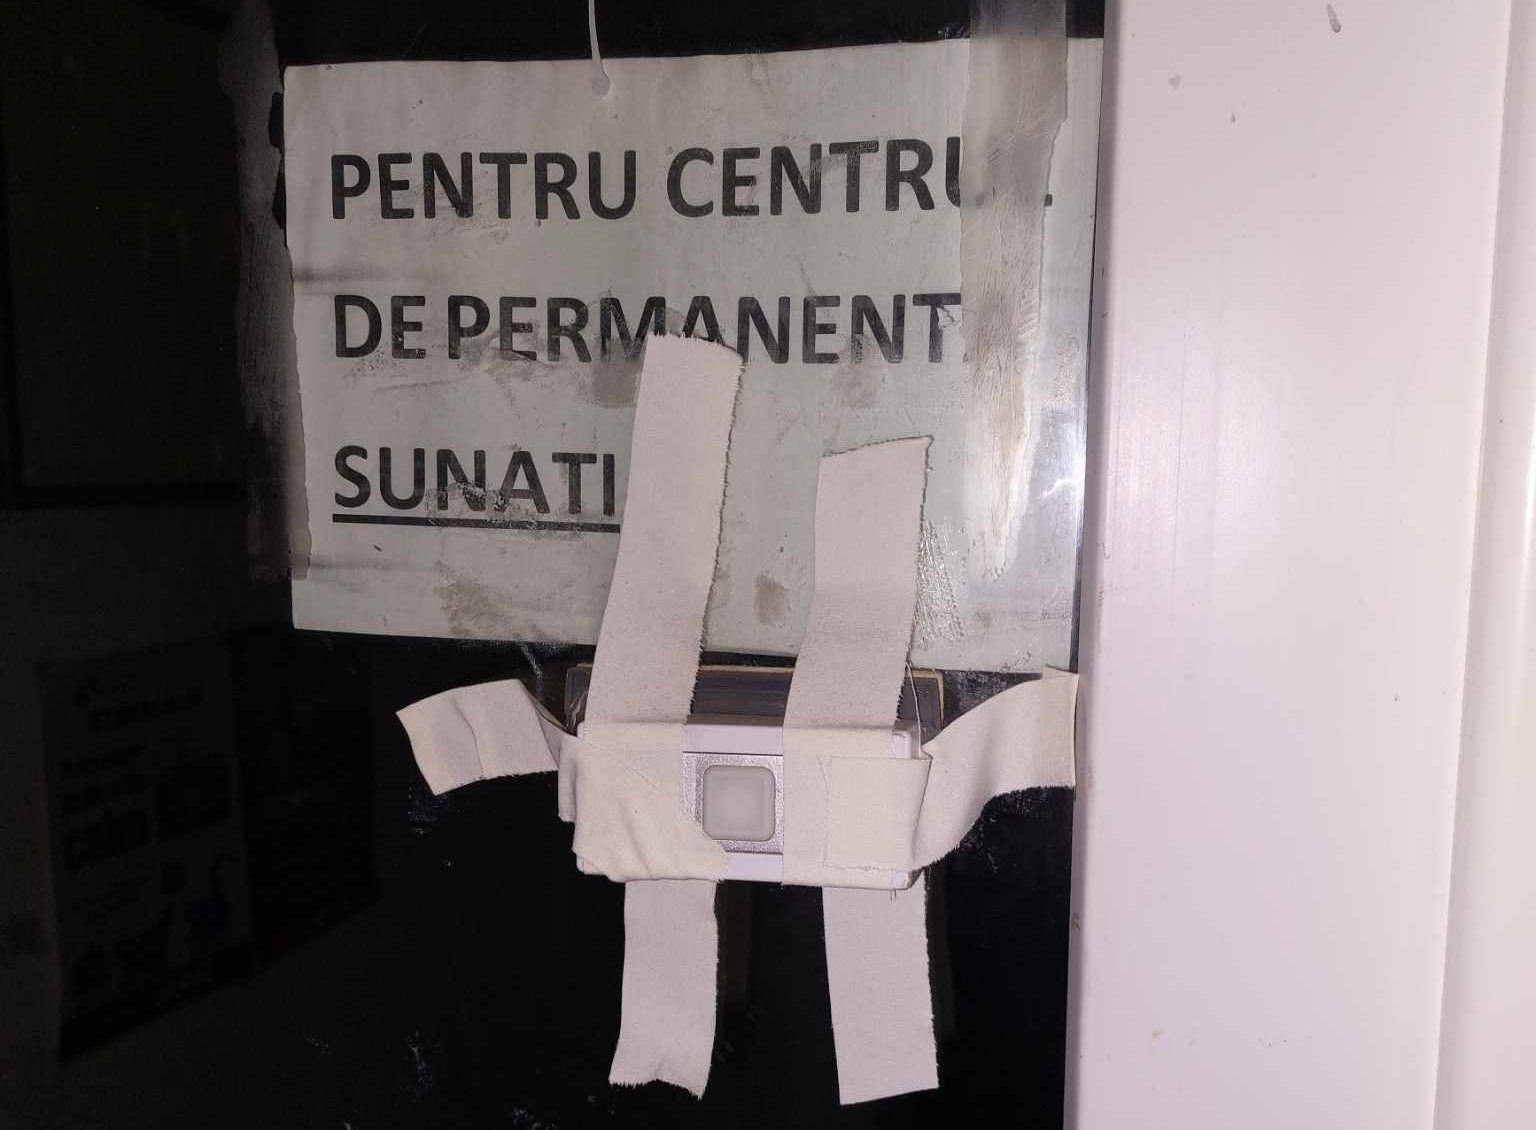 PENTRU CENTRUL
DE PERMANENT
SUNATI